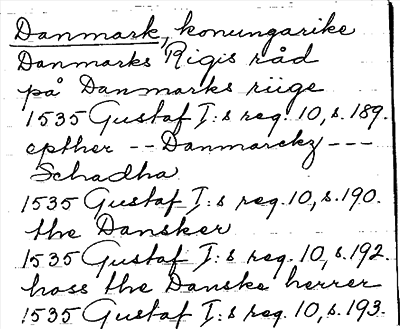 Danmark, konungarike
Danmarks Rigis råd
på Danmarks riige
1535 Gustaf I:s reg. 10, s. 189.
epther -- Danmarckz ---
Schadha
1535 Gustaf I:s reg. 10, s. 190.
the Dansker
1535 Gustaf I:s reg. 10, s. 192.
hoss the Danske herrer
1535 Gustaf I:s reg. 10, s. 193.